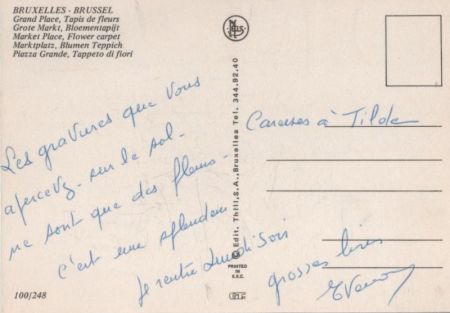 BRUXELLES - BRUSSEL
Grand Place, Tapis de fleurs
Grote Markt, Bloementapijt
Market Place, Flower carpet
Marktplatz, Blumen Teppich
Piazza Grande, Tappeto di fiori
Les gravures que vous
apercevez sur le sol
ne sont que des fleurs.
c'est une splendeur
Je rentre Lundi Soir
100/248
© Edit. Thill, S.A., Bruxelles Tel. 344.92.40
PRINTED
IN
E.E.C.
Caresses à Tilde
grosses bises